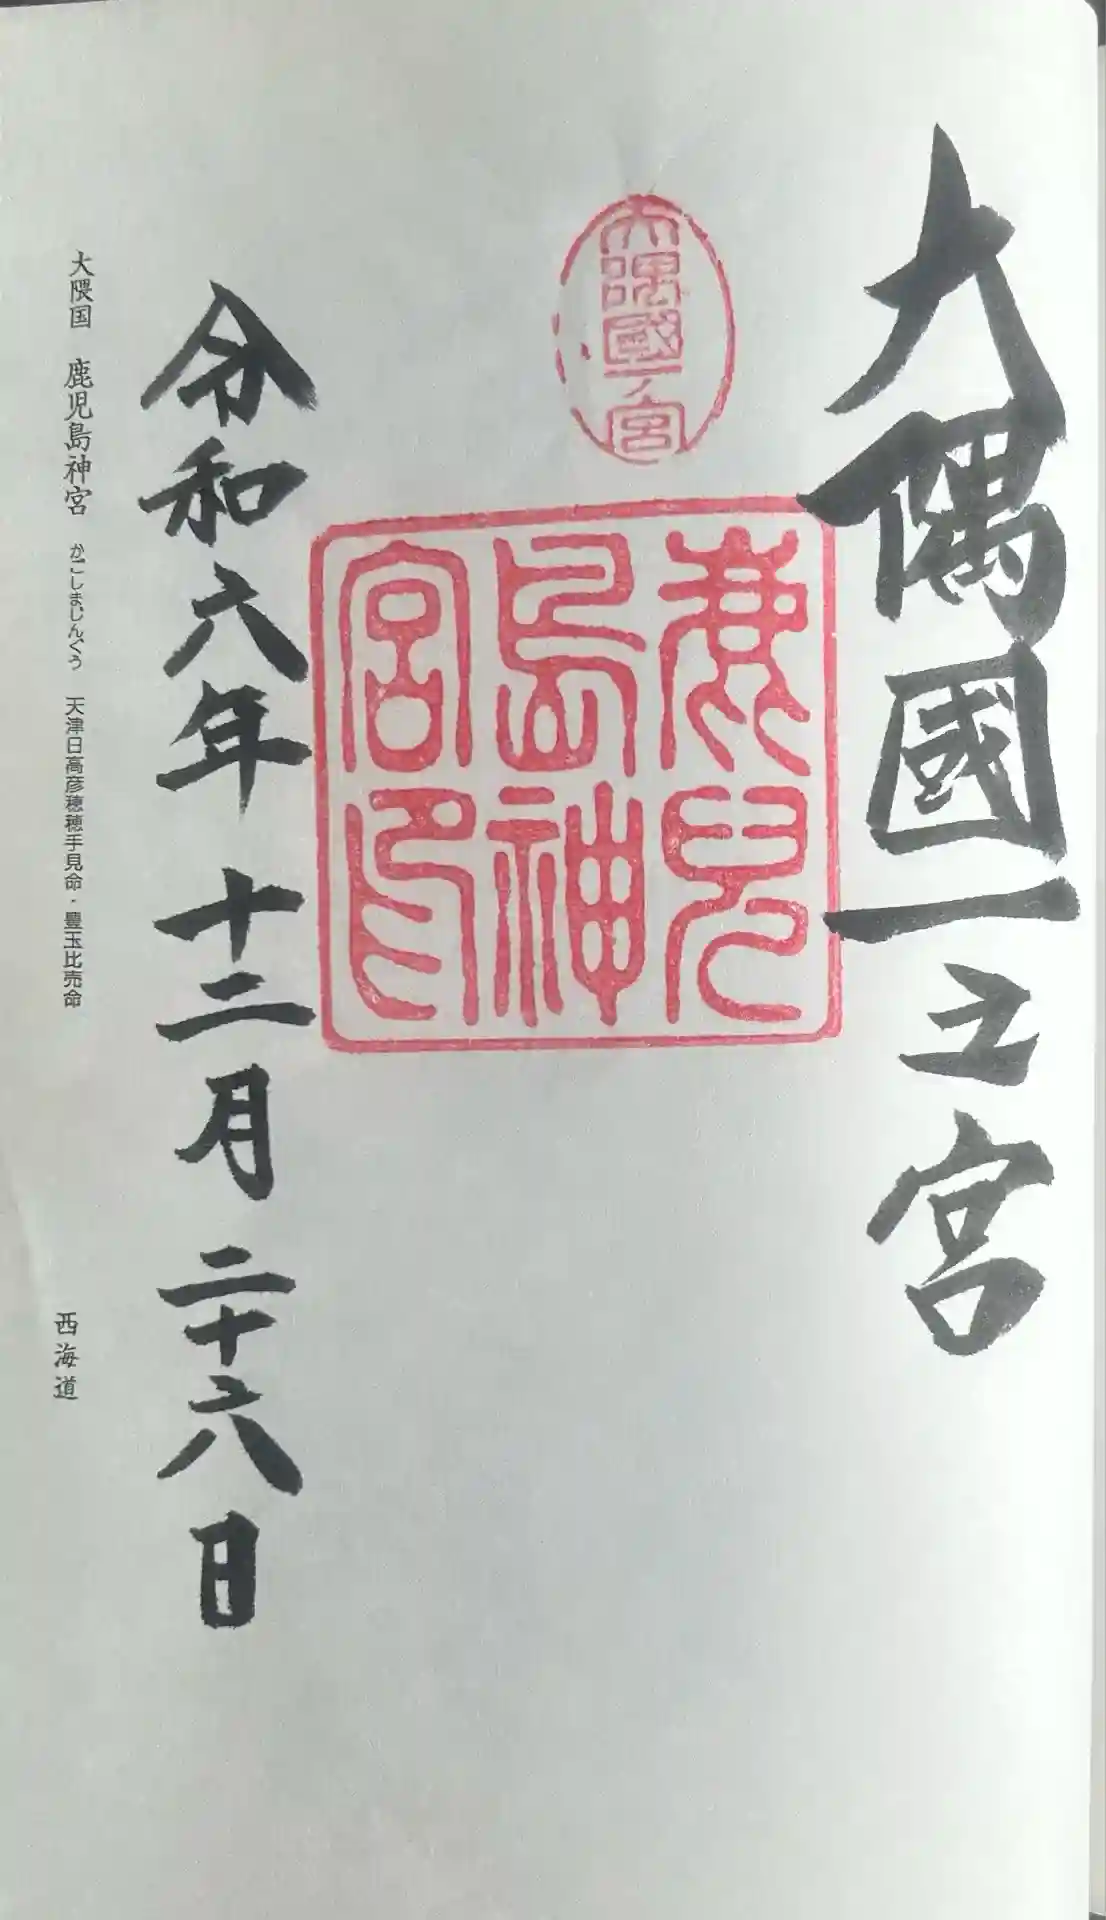 大隅國一之宮
大隅國一ノ宮
鹿兒
島神
宮印
令和六年十二月二十六日
大隈国 鹿児島神宮 かごしまじんぐう 天津日高彦穂穂手見命・豊玉比売命
西海道